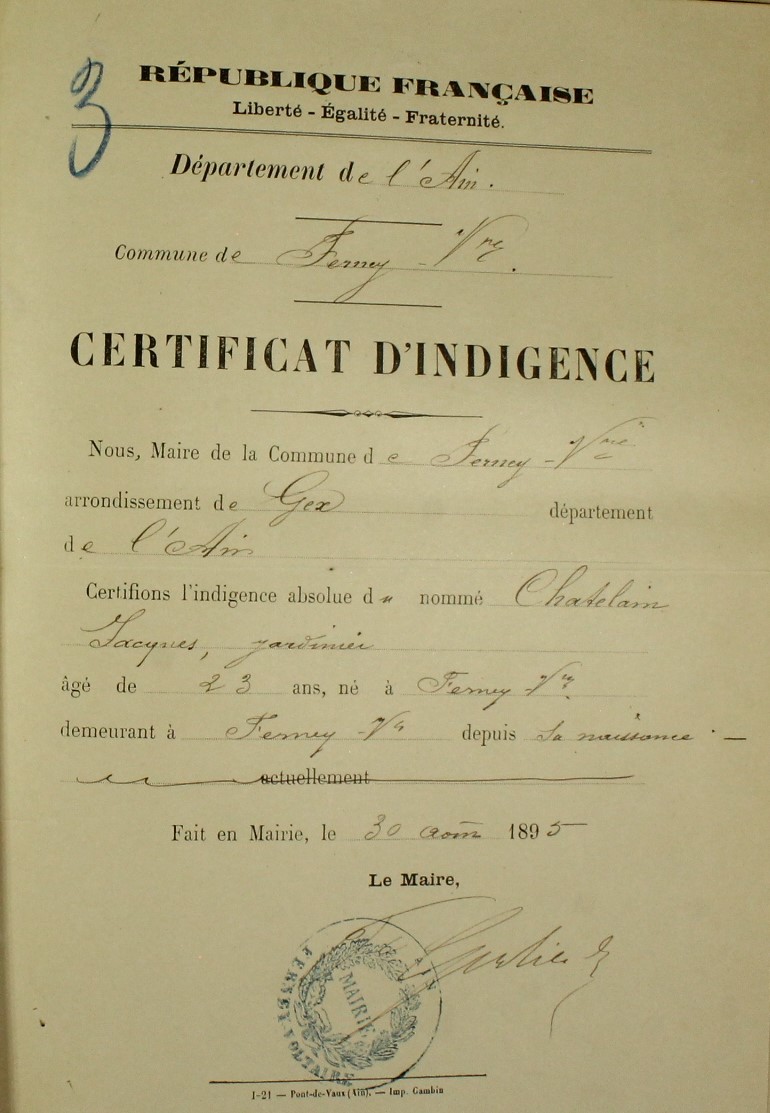 3
RÉPUBLIQUE FRANÇAISE
Liberté - Égalité - Fraternité.
Département de l'Ain.
Commune de Ferney - Vre.
CERTIFICAT D'INDIGENCE
Nous, Maire de la Commune de Ferney - Vre
arrondissement de Gex département
de l'Ain
Certifions l'indigence absolue du nommé Chatelain
Jacques, jardinier
âgé de 23 ans, né à Ferney Vre
demeurant à Ferney - Vre depuis sa naissance. —
actuellement
Fait en Mairie, le 30 août 1895
Le Maire,
MAIRIE
FERNEY-VOLTAIRE
1-21 — Pont-de-Vaux (Ain). — Imp. Gambin